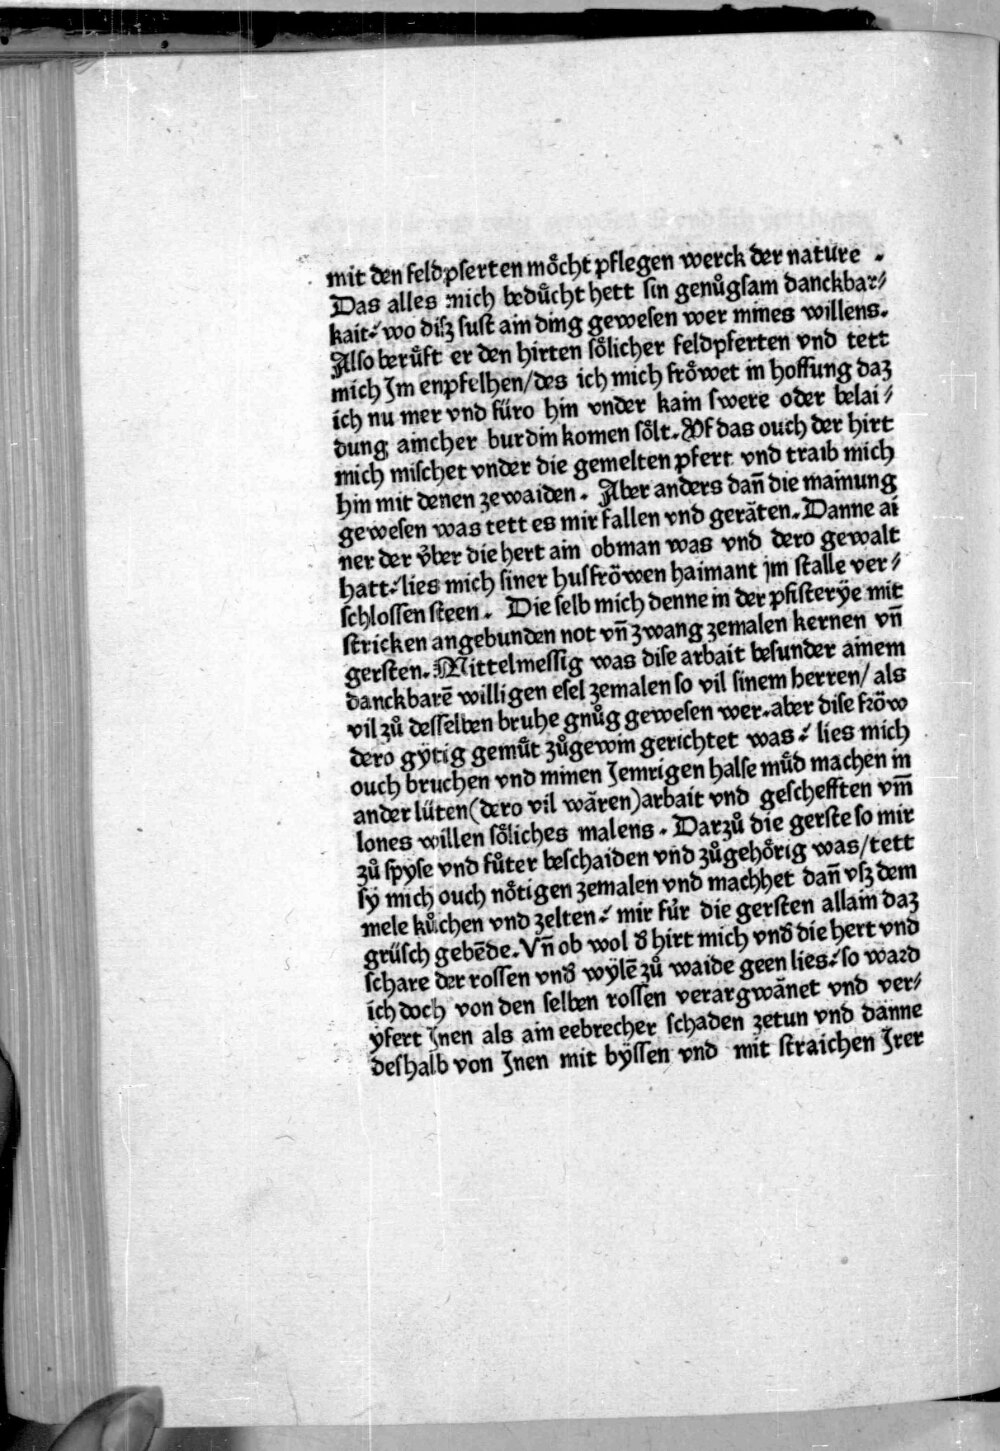 mit den feldpferten moͤcht pflegen werck der nature .
Das alles mich beduͤcht hett sin genuͦgsam danckbar⸗
kait·⁄ wo disz sust ain ding gewesen wer mines willens.
Also beruͤft er den hirten soͤlicher feldpferten vnd tett
mich Jm enpfelhen/des ich mich froͤwet in hoffung daz
ich nu mer vnd fuͤro hin vnder kain swere oder belai⸗
dung aincher burdin komen soͤlt. Vf das ouch der hirt
mich mischet vnder die gemelten pfert vnd traib mich
hin mit denen zewaiden. Aber anders dan̄ die mainung
gewesen was tett es mir fallen vnd geräten. Danne ai
ner der v̈ber die hert ain obman was vnd dero gewalt
hatt·⁄ lies mich siner husfröwen haimant jm stalle ver⸗
schlossen steen. Die selb mich denne in der pfisterÿe mit
stricken angebunden not vn̄ zwang zemalen kernen vn̄
gersten. Mittelmessig was dise arbait besunder ainem
danckbarē willigen esel zemalen so vil sinem herren/ als
vil zuͦ desselben bruhe gnuͦg gewesen wer. aber dise fröw
dero gÿtig gemuͤt zuͦgewin gerichtet was·⁄ lies mich
ouch bruchen vnd minen Jemrigen halse muͤd machen in
ander lüten(dero vil wären)arbait vnd geschefften vm̄
lones willen soͤliches malens. Darzuͦ die gerste so mir
zuͦ spyse vnd fuͦter beschaiden vnd zuͦgehoͤrig was/tett
sÿ mich ouch noͤtigen zemalen vnd machhet dan̄ vsz dem
mele kuͦchen vnd zelten·⁄ mir fuͤr die gersten allain daz
grüsch gebēde. Vn̄ ob wol d̕ hirt mich vnd̕ die hert vnd
schare der rossen vnd̕ wÿlē zuͦ waide geen lies·⁄ so ward
ich doch von den selben rossen verargwänet vnd ver⸗
yfert Jnen als ain eebrecher schaden zetun vnd danne
deshalb von Jnen mit bÿssen vnd mit straichen Jrer